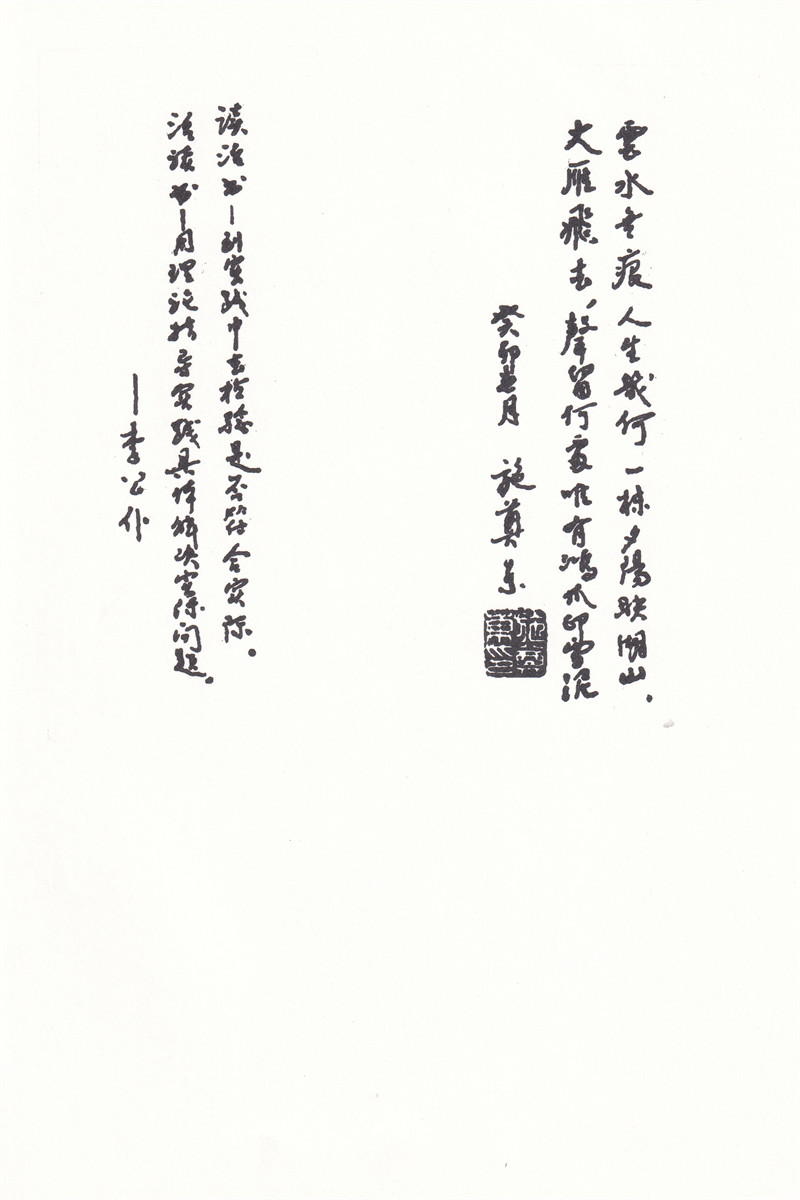 雲水無痕人生幾何一抹夕陽映湖山.
大雁飛去,聲留何處唯有鴻爪印雪泥
癸卯 月 施奠东
读活书—到实践中去检验是否符合实际。
活读书—用理论指导实践具体解决实际问题。
—李公仆